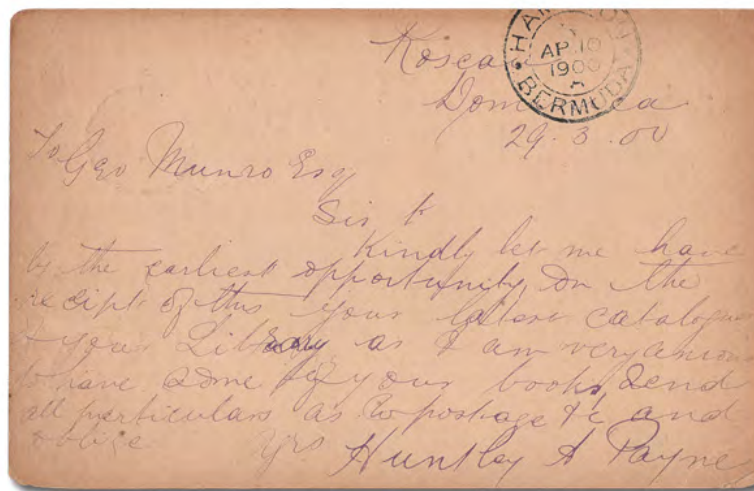 HAMILTON
AP 10
1900
A
BERMUDA
Roseau
Dominica
29.3.00
To Geo Munro Esq
Sir
Kindly let me have
by the earliest opportunity on the
receipt of this your latest catalogue
of your Library as I am very anxious
to have some of your books, Send
all particulars as to postage &c and
oblige Yrs Huntley A Payne